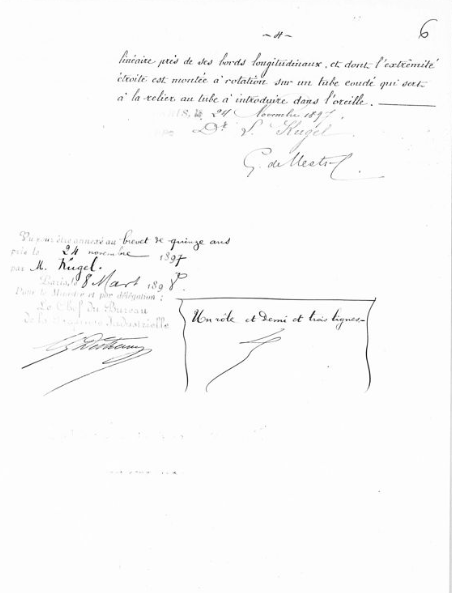 - 4 -
6
linéaire près de ses bords longitudinaux, et dont l'extrémité
étroite est montée à rotation sur un tube coudé qui sert
à la relier au tube à introduire dans l'oreille.
24 Novembre 1897
Dr L. Kugel
G. de Mestral
Vu pour être annexé au brevet de quinze ans
pris le 24 novembre 1897
par M. Kugel.
Paris, le 8 Mars 1898
Pour le Ministre et par délégation :
Le Chef du Bureau
de la Propriété Industrielle
Un rôle et demi et trois lignes